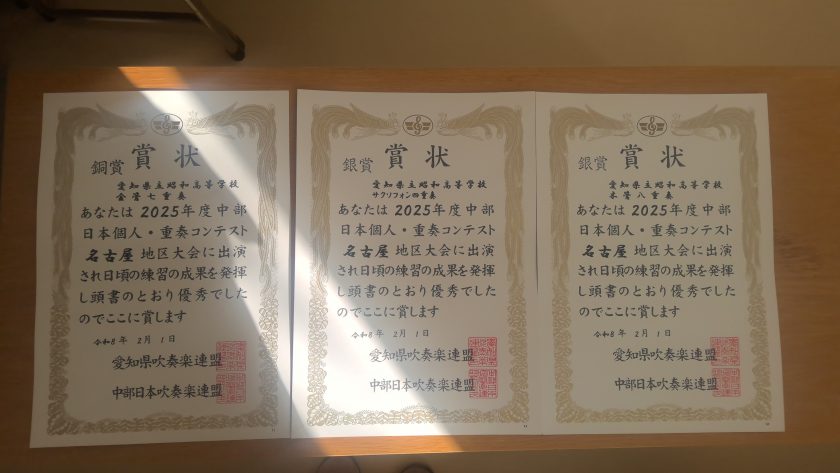 銅賞
賞状
愛知県立昭和高等学校
金管七重奏
あなたは2025年度中部
日本個人・重奏コンテスト
名古屋地区大会に出演
され日頃の練習の成果を発揮
し頭書のとおり優秀でした
のでここに賞します
令和8年 2月 1日
愛知県吹奏楽連盟
中部日本吹奏楽連盟
銀賞
賞状
愛知県立昭和高等学校
サクソフォン四重奏
あなたは2025年度中部
日本個人・重奏コンテスト
名古屋地区大会に出演
され日頃の練習の成果を発揮
し頭書のとおり優秀でした
のでここに賞します
令和8年 2月 1日
愛知県吹奏楽連盟
中部日本吹奏楽連盟
銀賞
賞状
愛知県立昭和高等学校
木管八重奏
あなたは2025年度中部
日本個人・重奏コンテスト
名古屋地区大会に出演
され日頃の練習の成果を発揮
し頭書のとおり優秀でした
のでここに賞します
令和8年 2月 1日
愛知県吹奏楽連盟
中部日本吹奏楽連盟